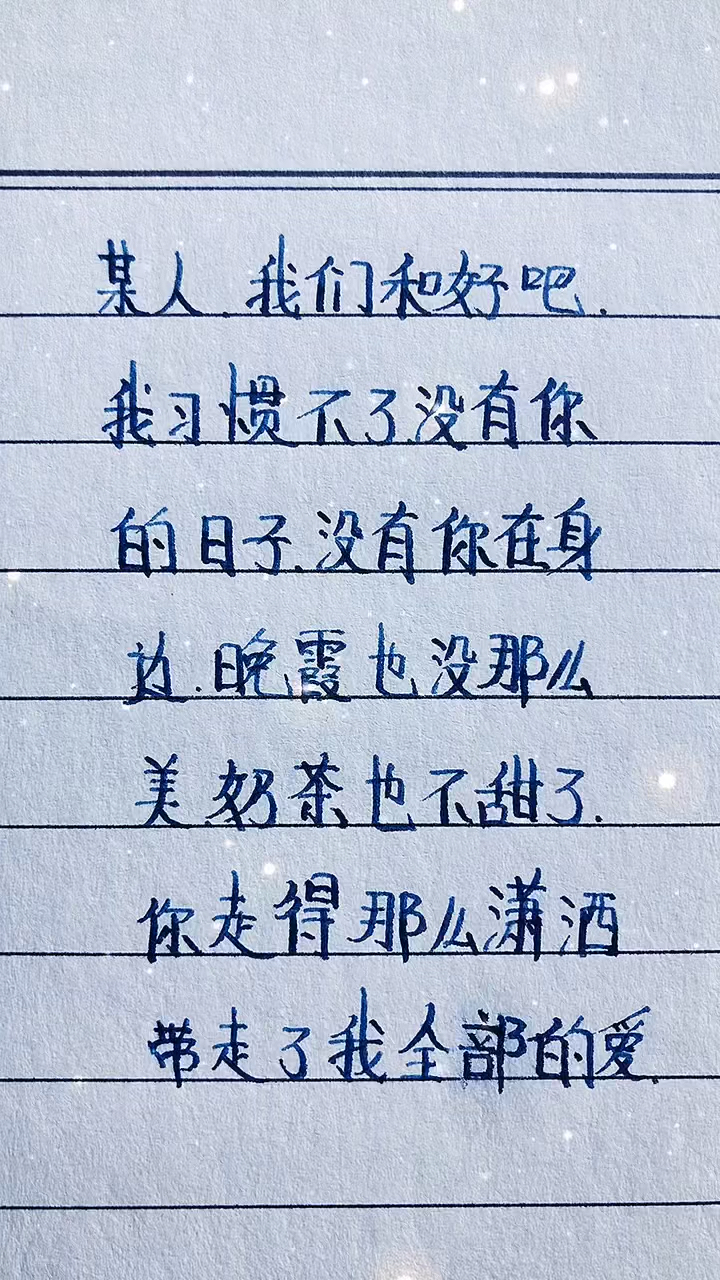 某人.我们和好吧.
我习惯不了没有你
的日子.没有你在身
边.晚霞也没那么
美.奶茶也不甜了.
你走得那么潇洒
带走了我全部的爱.